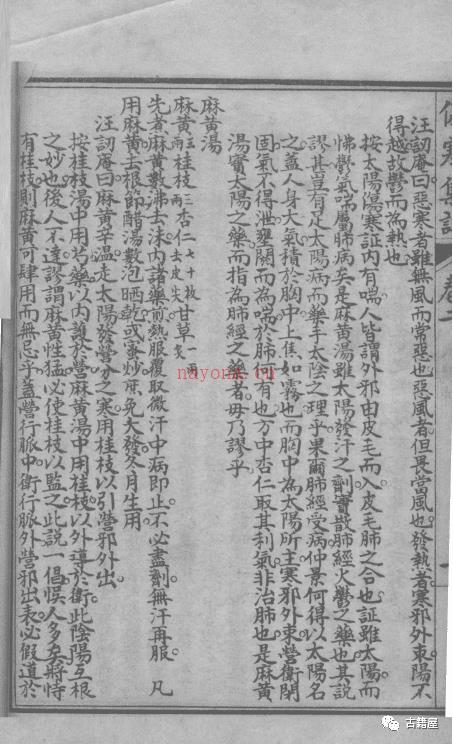 傷寒集註　卷二
汪訒庵曰惡寒者雖無風而常惡也惡風者但畏當風也發熱者寒邪外束陽不
得越故鬱而為熱也
按太陽傷寒証內有喘人皆謂外邪由皮毛而入皮毛肺之合也証雖太陽而
怫鬱氣喘屬肺病矣是麻黃湯雖太陽發汗之劑實散肺經火鬱之藥也其說
謬甚豈有足太陽病而藥手太陰之理乎果爾肺經受病仲景何得以太陽名
之蓋人身大氣積於胸中上焦如霧也而胸中為太陽所主寒邪外束營衛閉
固氣不得泄壅閼而為喘於肺何有也方中杏仁取其利氣非治肺也是麻黃
湯實太陽之藥而指為肺經之藥者毋乃謬乎
麻黃湯
麻黃三兩桂枝三兩杏仁七十枚去皮尖甘草一兩炙
先煮麻黃數沸去沫內諸藥煎熱服覆取微汗中病即止不必盡劑無汗再服　凡
用麻黃去根節醋湯數泡晒乾或蜜炒庶免大發冬月生用
汪訒庵曰麻黃辛溫走太陽發營分之寒用桂枝以引營邪外出
按桂枝湯中用芍藥以內護於營麻黃湯中用桂枝以外導於衛此陰陽互根
之妙也後人不達謬謂麻黃性猛必使桂枝以監之此說一倡悞人多矣將恃
有桂枝則麻黃可肆用而無忌乎蓋營行脈中衛行脈外營邪出表必假道於
nayona.cn
古籍屋